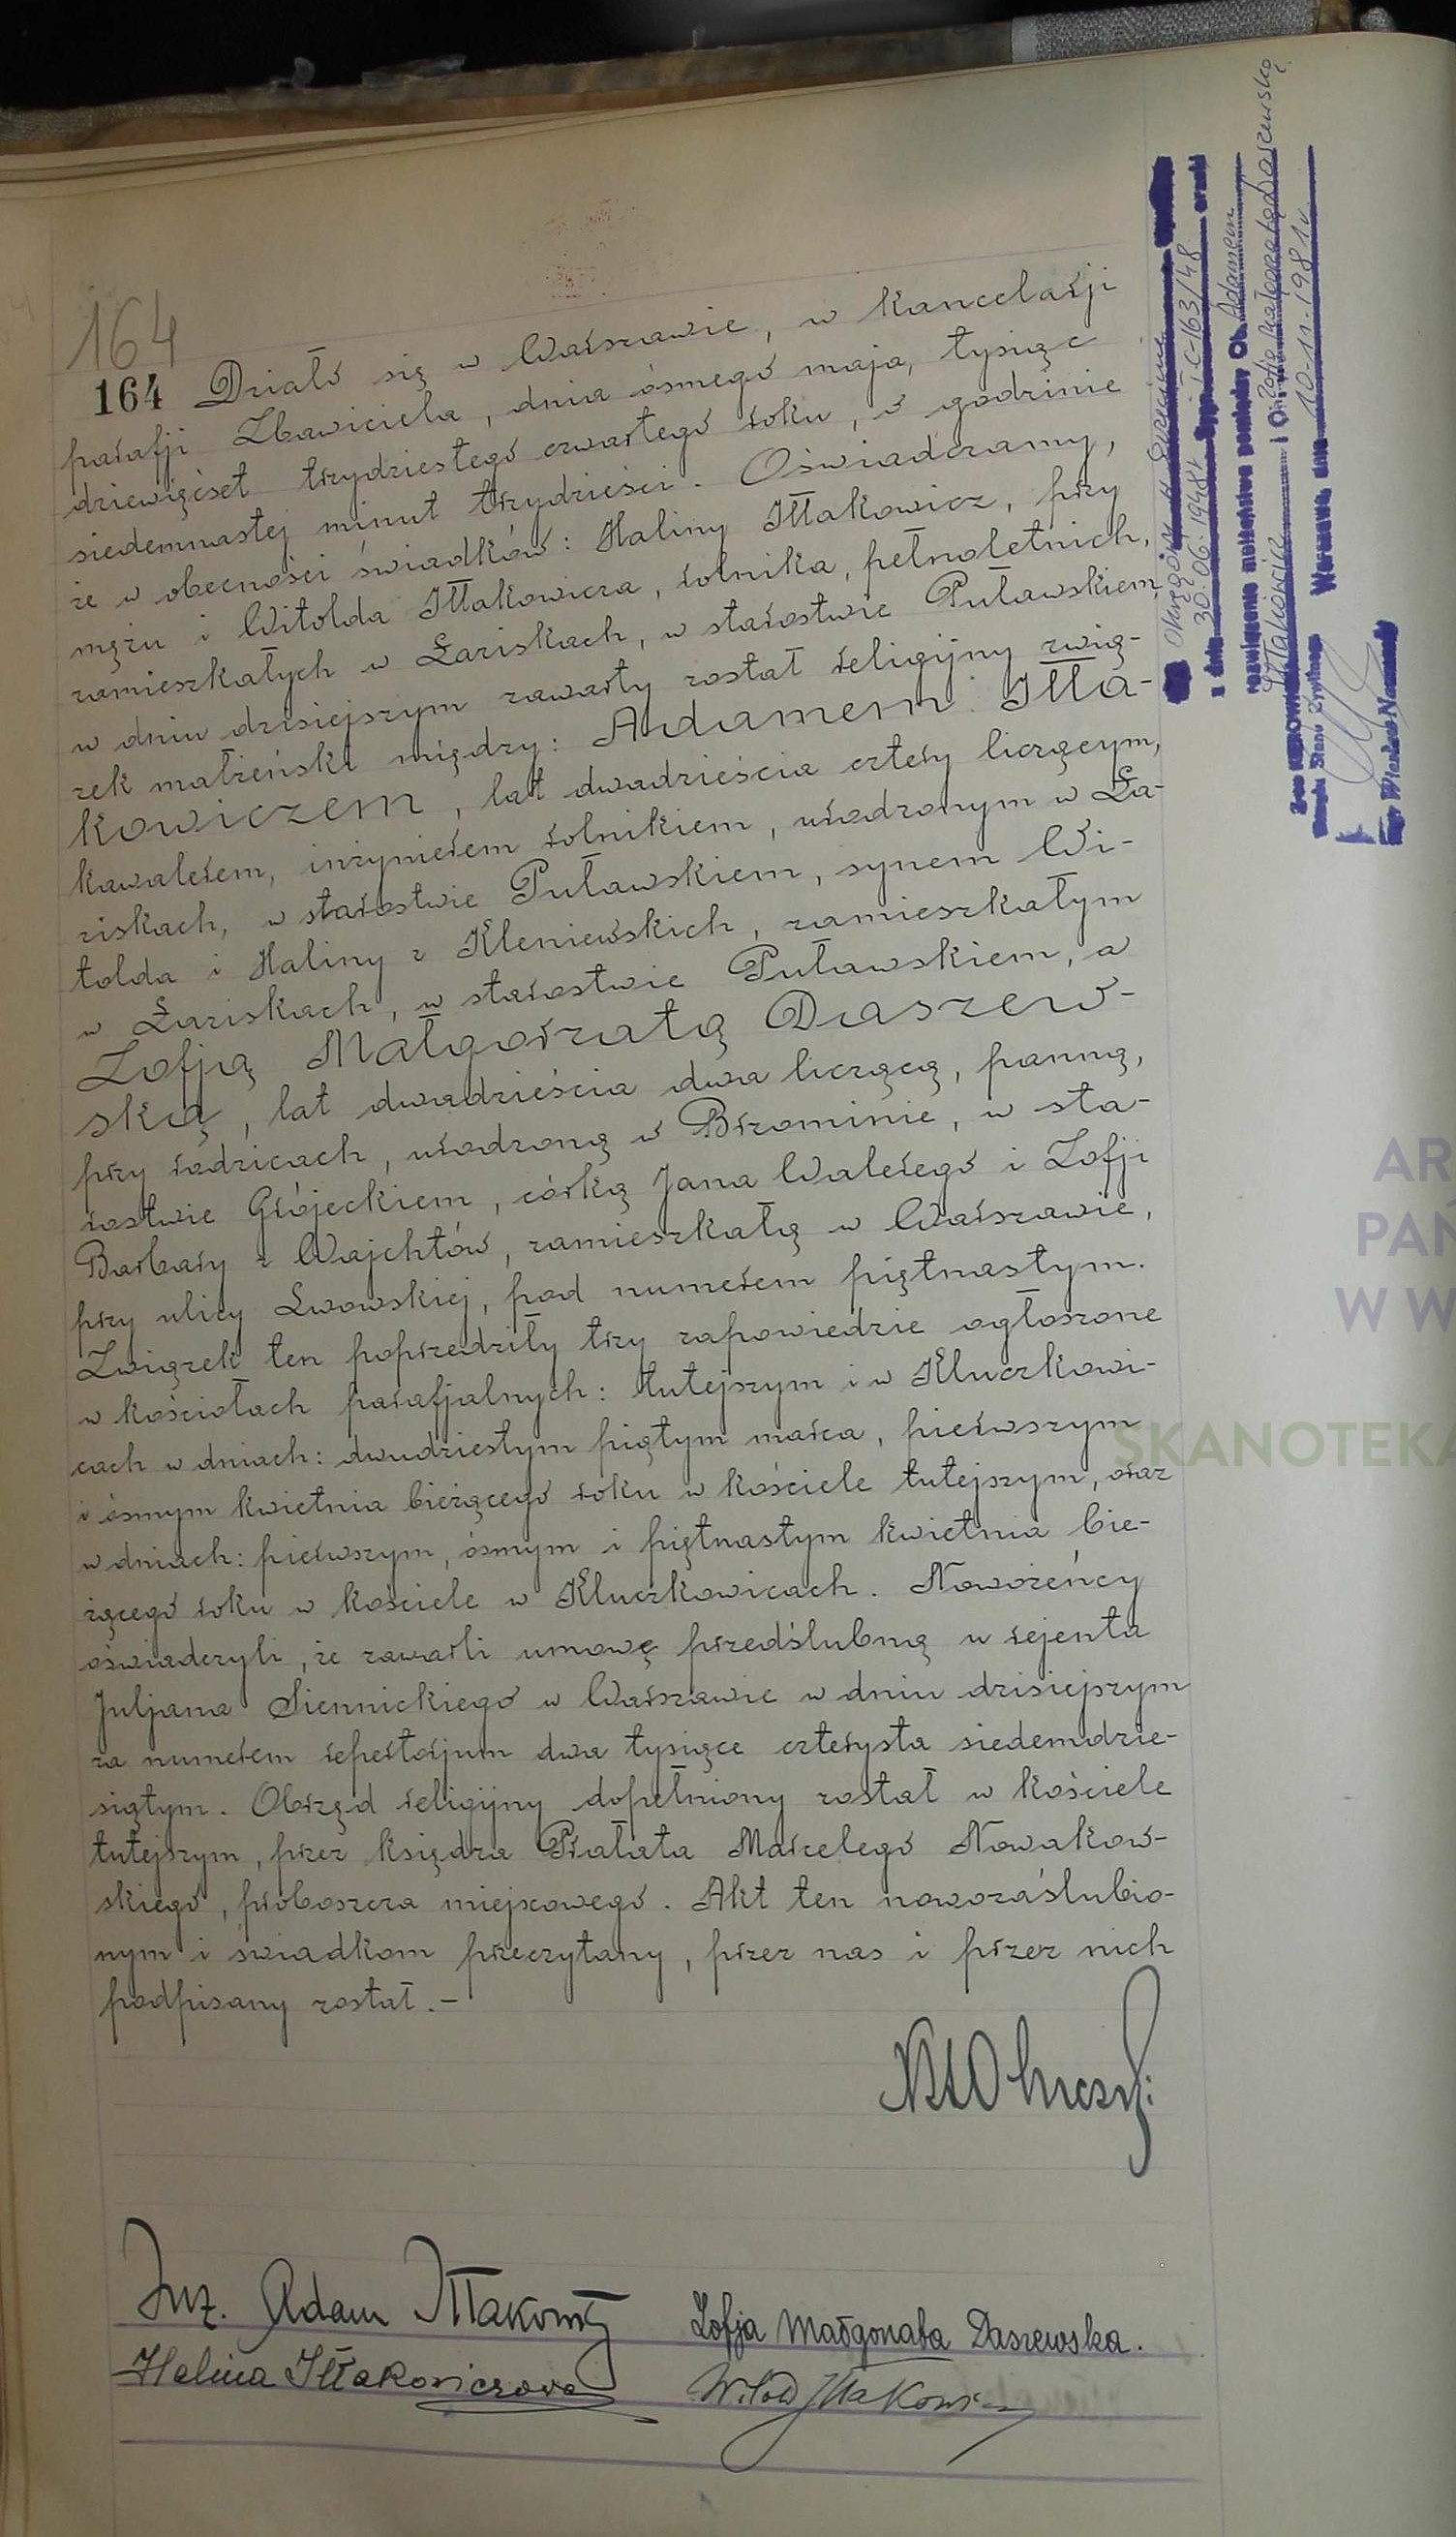 164
164 Działo się w Warszawie, w kancelarji
parafji Zbawiciela, dnia ósmego maja, tysiąc
dziewięćset trzydziestego czwartego roku, o godzinie
siedemnastej minut trzydzieści. Oświadczamy,
że w obecności świadków: Haliny Iłłakowicz, przy
mężu i Witolda Iłłakowicza, rolnika, pełnoletnich,
zamieszkałych w Łaziskach, w starostwie Puławskiem
w dniu dzisiejszym zawarty został religijny zwią-
zek małżeński między: Adamem Iłła-
kowiczem, lat dwadzieścia cztery liczącym,
kawalerem, inżynierem rolnikiem, urodzonym w Ła-
ziskach, w starostwie Puławskiem, synem Wi-
tolda i Haliny z Kleniewskich, zamieszkałym
w Łaziskach, w starostwie Puławskiem, a
Zofją Małgorzatą Daszew-
ską, lat dwadzieścia dwa liczącą, panną,
przy rodzicach, urodzoną w Brominie, w sta-
rostwie Grójeckiem, córką Jana Walerego i Zofji
Barbary z Wajchtów, zamieszkałą w Warszawie,
przy ulicy Lwowskiej, pod numerem piętnastym.
Związek ten poprzedziły trzy zapowiedzie ogłoszone
w kościołach parafjalnych: tutejszym i w Kluczkowi-
cach w dniach: dwudziestym piątym marca, pierwszym
i ósmym kwietnia bieżącego roku w kościele tutejszym, oraz
w dniach: pierwszym, ósmym i piętnastym kwietnia bie-
żącego roku w kościele w Kluczkowicach. Nowożeńcy
oświadczyli, że zawarli umowę przedślubną u rejenta
Juljana Siennickiego w Warszawie w dniu dzisiejszym
za numerem repertorjum dwa tysiące czterysta siedemdzie-
siątym. Obrzęd religijny dopełniony został w kościele
tutejszym, przez księdza Prałata Marcelego Nowakow-
skiego, proboszcza miejscowego. Akt ten nowozaślubio-
nym i świadkom przeczytany, przez nas i przez nich
podpisany został.-
Inż. Adam Iłłakowicz
Zofja Małgorzata Daszewska.
Halina Iłłakowiczowa
Witold Iłłakowicz
Okręgów w Szczecinie
z dnia 30.06.1948r Sygn. I C-163/48 orzekł
rozwiązanie małżeństwa pomiędzy Ob. Adamem
Iłłakowicz i Ob. Zofią Małgorzatą Daszewską
Warszawa, dnia 10-11-1981r.
Urzędu Stanu Cywilnego
SKANOTEKA